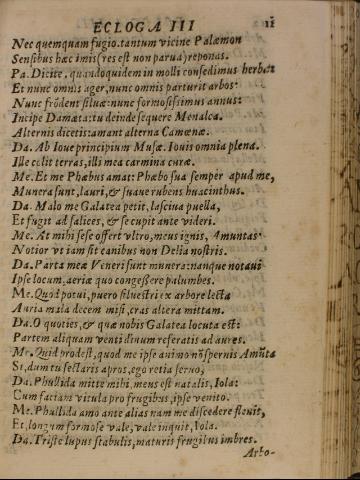 ECLOGA III 11
Nec quemquam fugio. tantum vicine Palæmon
Sensibus hæc imis (res est non parua) reponas.
Pa. Dicite, quandoquidem in molli consedimus herba:
Et nunc omnis ager, nunc omnis parturit arbos:
Nunc frōdent siluæ: nunc formosissimus annus:
Incipe Damæta: tu deinde sequere Menalca.
Alternis dicetis: amant alterna Camœnæ.
Da. Ab Ioue principium Musæ. Iouis omnia plena.
Ille colit terras, illi mea carmina curæ.
Me. Et me Phœbus amat: Phœbo sua semper apud me,
Munera sunt, lauri, & suaue rubens huacinthus.
Da. Malo me Galatea petit, lasciua puella,
Et fugit ad salices, & se cupit ante videri.
Me. At mihi sese offert vltro, meus ignis, Amuntas:
Notior vt iam sit canibus non Delia nostris.
Da. Parta meæ Veneri sunt munera: nanque notaui
Ipse locum, aeriæ quo congessere palumbes.
Me. Quod potui, puero siluestri ex arbore lecta
Auria mala decem misi, cras altera mittam.
Da. O quoties, & quæ nobis Galatea locuta est:
Partem aliquam venti diuum referatis ad aures.
Me. Quid prodest, quod me ipse animo nō spernis Amūta
Si, dum tu sectaris apros, ego retia seruo,
Da. Phullida mitte mihi, meus est natalis, Iola:
Cum faciam vitula pro frugibus, ipse venito.
Me. Phullida amo ante alias nam me discedere fleuit,
Et, longum formose vale, vale inquit, Iola.
Da. Triste lupus stabulis, maturis frugibus imbres.
Arbo-